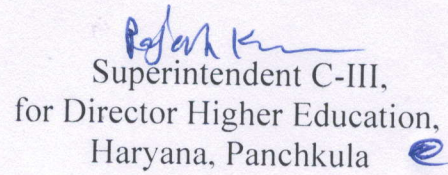 Superintendent C-III,
for Director Higher Education,
Haryana, Panchkula